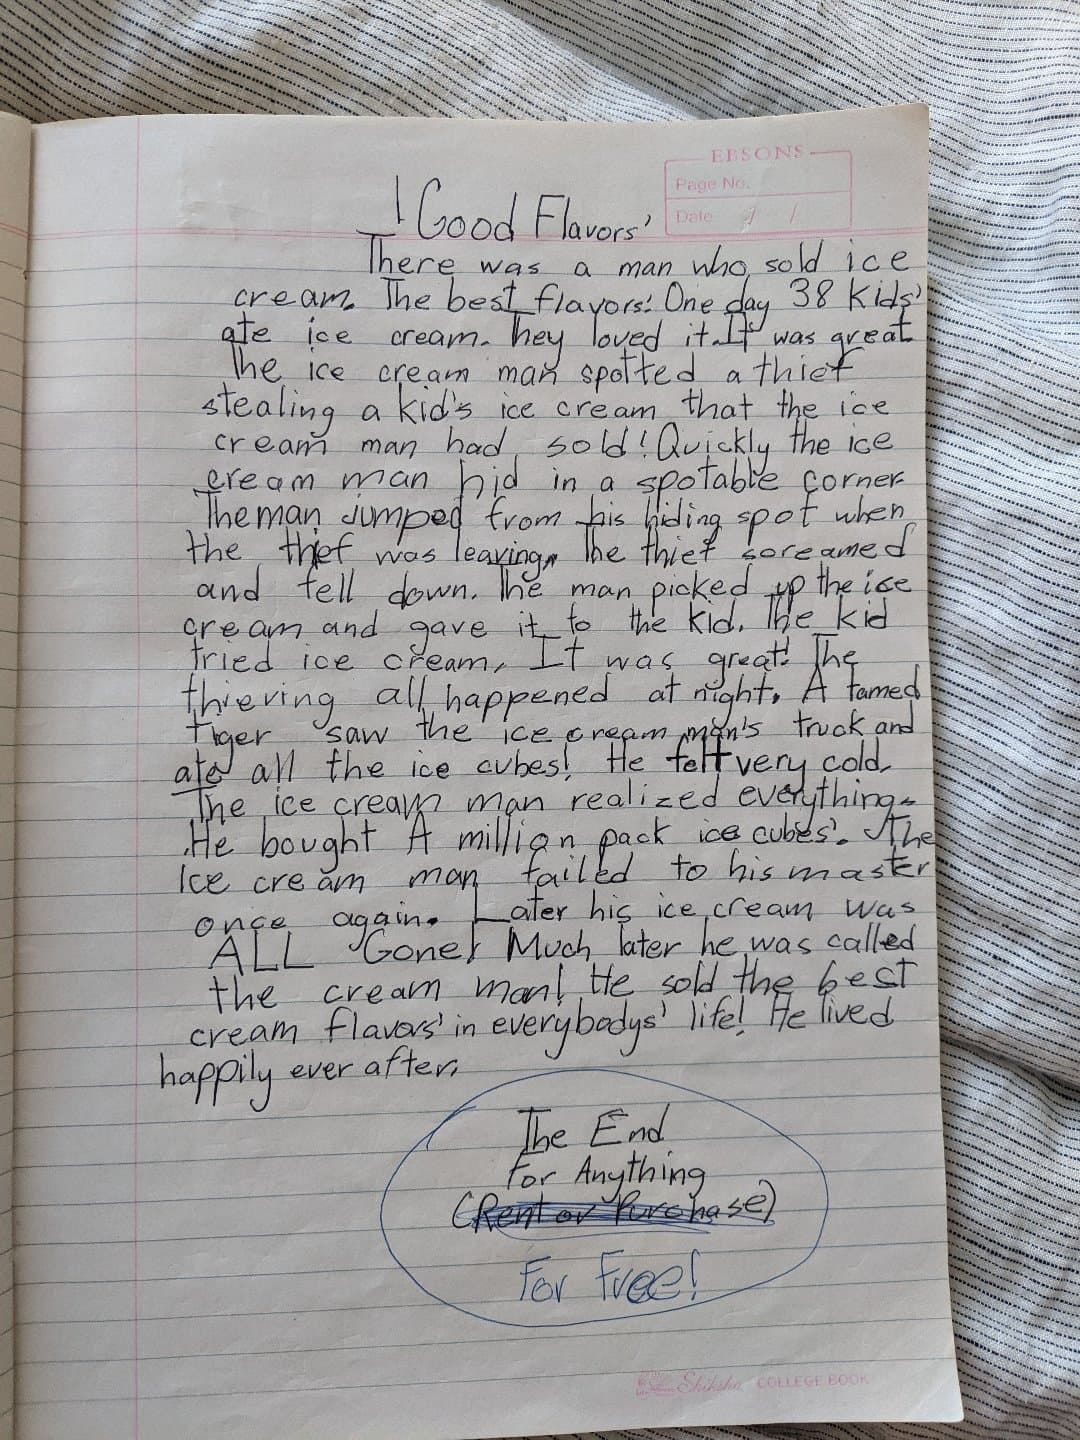 EBSONS
Page No.
Date / /
! Good Flavors'
There was a man who sold ice
cream. The best flavors! One day 38 kids'
ate ice cream. They loved it. It was great.
The ice cream man spotted a thief
stealing a kid's ice cream that the ice
cream man had sold! Quickly the ice
cream man hid in a spotable corner.
The man jumped from his hiding spot when
the thief was leaving. The thief screamed
and fell down. The man picked up the ice
cream and gave it to the kid. The kid
tried ice cream. It was great! The
thieving all happened at night. A tamed
tiger saw the ice cream man's truck and
ate all the ice cubes! He felt very cold.
The ice cream man realized everything.
He bought A million pack ice cubes'. The
Ice cream man failed to his master
once again. Later his ice cream was
ALL Gone! Much later he was called
the cream man! He sold the best
cream flavors' in everybodys' life! He lived
happily ever after.
The End
For Anything
(Rent or Purchase)
For Free!
Shiksha COLLEGE BOOK